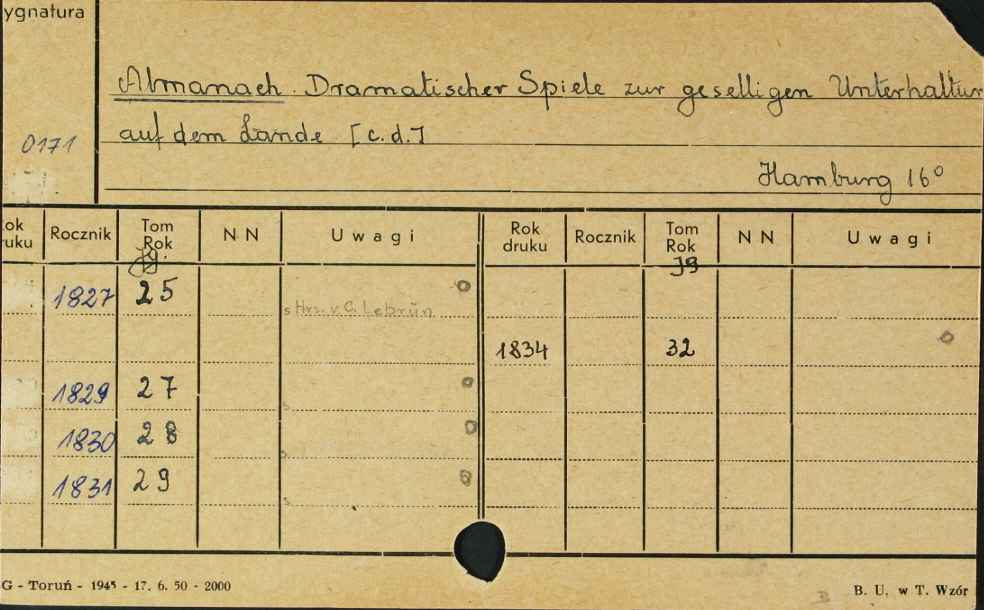 ygnatura
Almanach. Dramatischer Spiele zur geselligen Unterhaltun
auf dem Lande [c.d.]
0171
Hamburg 16°
ok ruku Rocznik Tom Rok NN Uwagi Rok druku Rocznik Tom Rok NN Uwagi
Jg. Jg
1827 25 s Hrs. v. C. Lebrün o
1834 32 o
1829 27 s. o
1830 28 s o
1831 29 s o
G - Toruń - 1945 - 17. 6. 50 - 2000 B. U. w T. Wzór